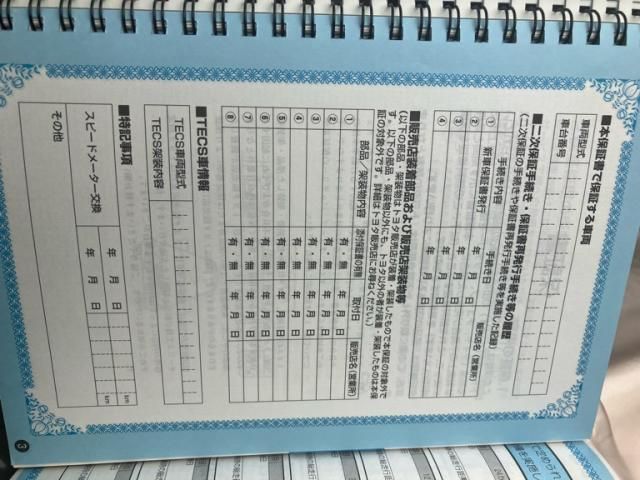 ■本保証書で保証する車両
車両型式
車台番号
■二次保証手続き・保証書再発行手続き等の履歴
(二次保証の手続きや保証書再発行手続き等を実施した記録)
手続き内容 手続き日 販売店名(営業所)
① 新車保証書発行 年 月 日
② 年 月 日
③ 年 月 日
④ 年 月 日
■販売店装着部品および販売店架装物等
(以下の部品・架装物はトヨタ販売店が装着・架装したもので本保証の対象外です。以下の部品・架装物以外にも、トヨタ以外の者が装着・架装したものは本保証の対象外です。詳細はトヨタ販売店にお尋ねください。)
部品／架装物内容 添付保証書の有無 取付日 販売店名(営業所)
① 有・無 年 月 日
② 有・無 年 月 日
③ 有・無 年 月 日
④ 有・無 年 月 日
⑤ 有・無 年 月 日
⑥ 有・無 年 月 日
⑦ 有・無 年 月 日
⑧ 有・無 年 月 日
■TECS車情報
TECS車両型式
TECS架装内容
■特記事項
スピードメーター交換 年 月 日 km
年 月 日 km
その他
3